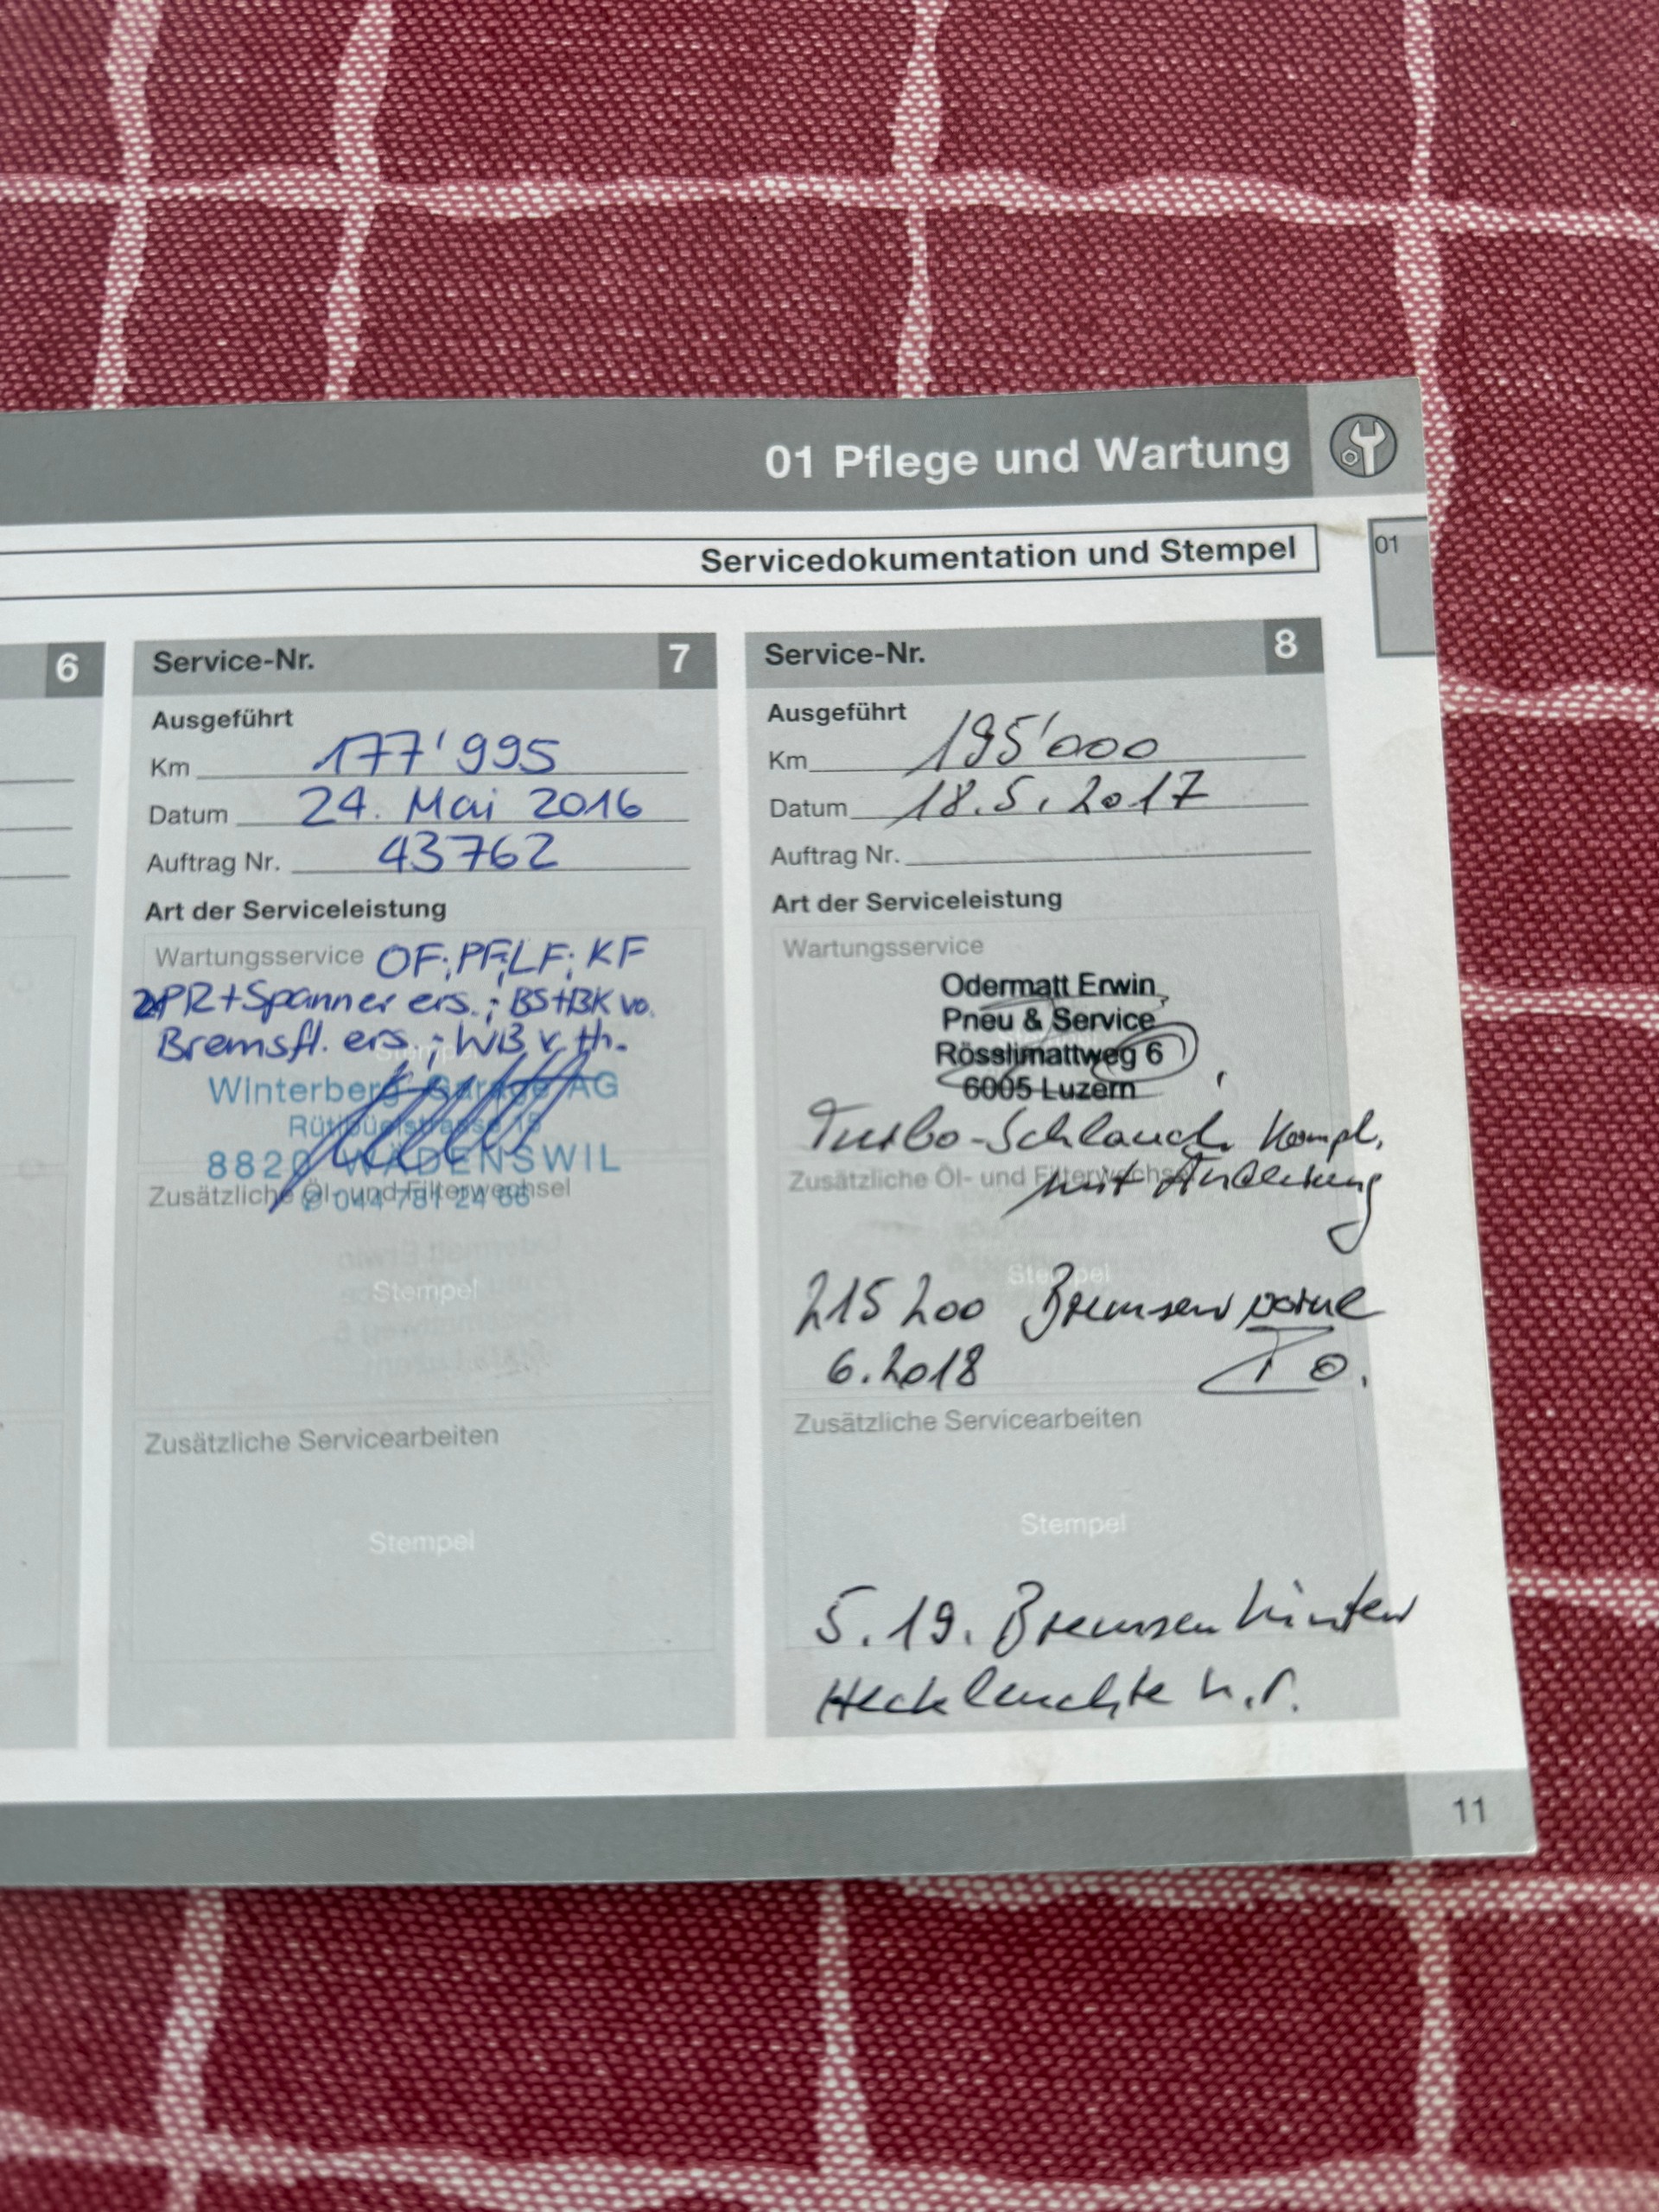 01 Pflege und Wartung
Servicedokumentation und Stempel
01
6
Service-Nr. 7
Ausgeführt
Km 177'995
Datum 24. Mai 2016
Auftrag Nr. 43762
Art der Serviceleistung
Wartungsservice OF; PF; LF; KF
2xPR+Spanner ers.; BS+BK vo.
Bremsfl. ers.; WB v. th.
Stempel
Winterberg Garage AG
Rütibüelstrasse 15
8820 WÄDENSWIL
044 781 24 66
Zusätzliche Öl- und Filterwechsel
Stempel
Zusätzliche Servicearbeiten
Stempel
Service-Nr. 8
Ausgeführt
Km 195'000
Datum 18.5.2017
Auftrag Nr.
Art der Serviceleistung
Wartungsservice
Odermatt Erwin
Pneu & Service
Rösslimattweg 6
6005 Luzern
Turbo-Schlauch kompl.
Zusätzliche Öl- und Filterwechsel
mit
Stempel
215 200 Bremsen vorne
6.2018
Zusätzliche Servicearbeiten
Stempel
5.19. Bremsen hinten
Heckleuchte h.r.
11